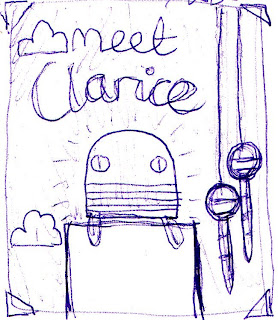 meet
Clarice